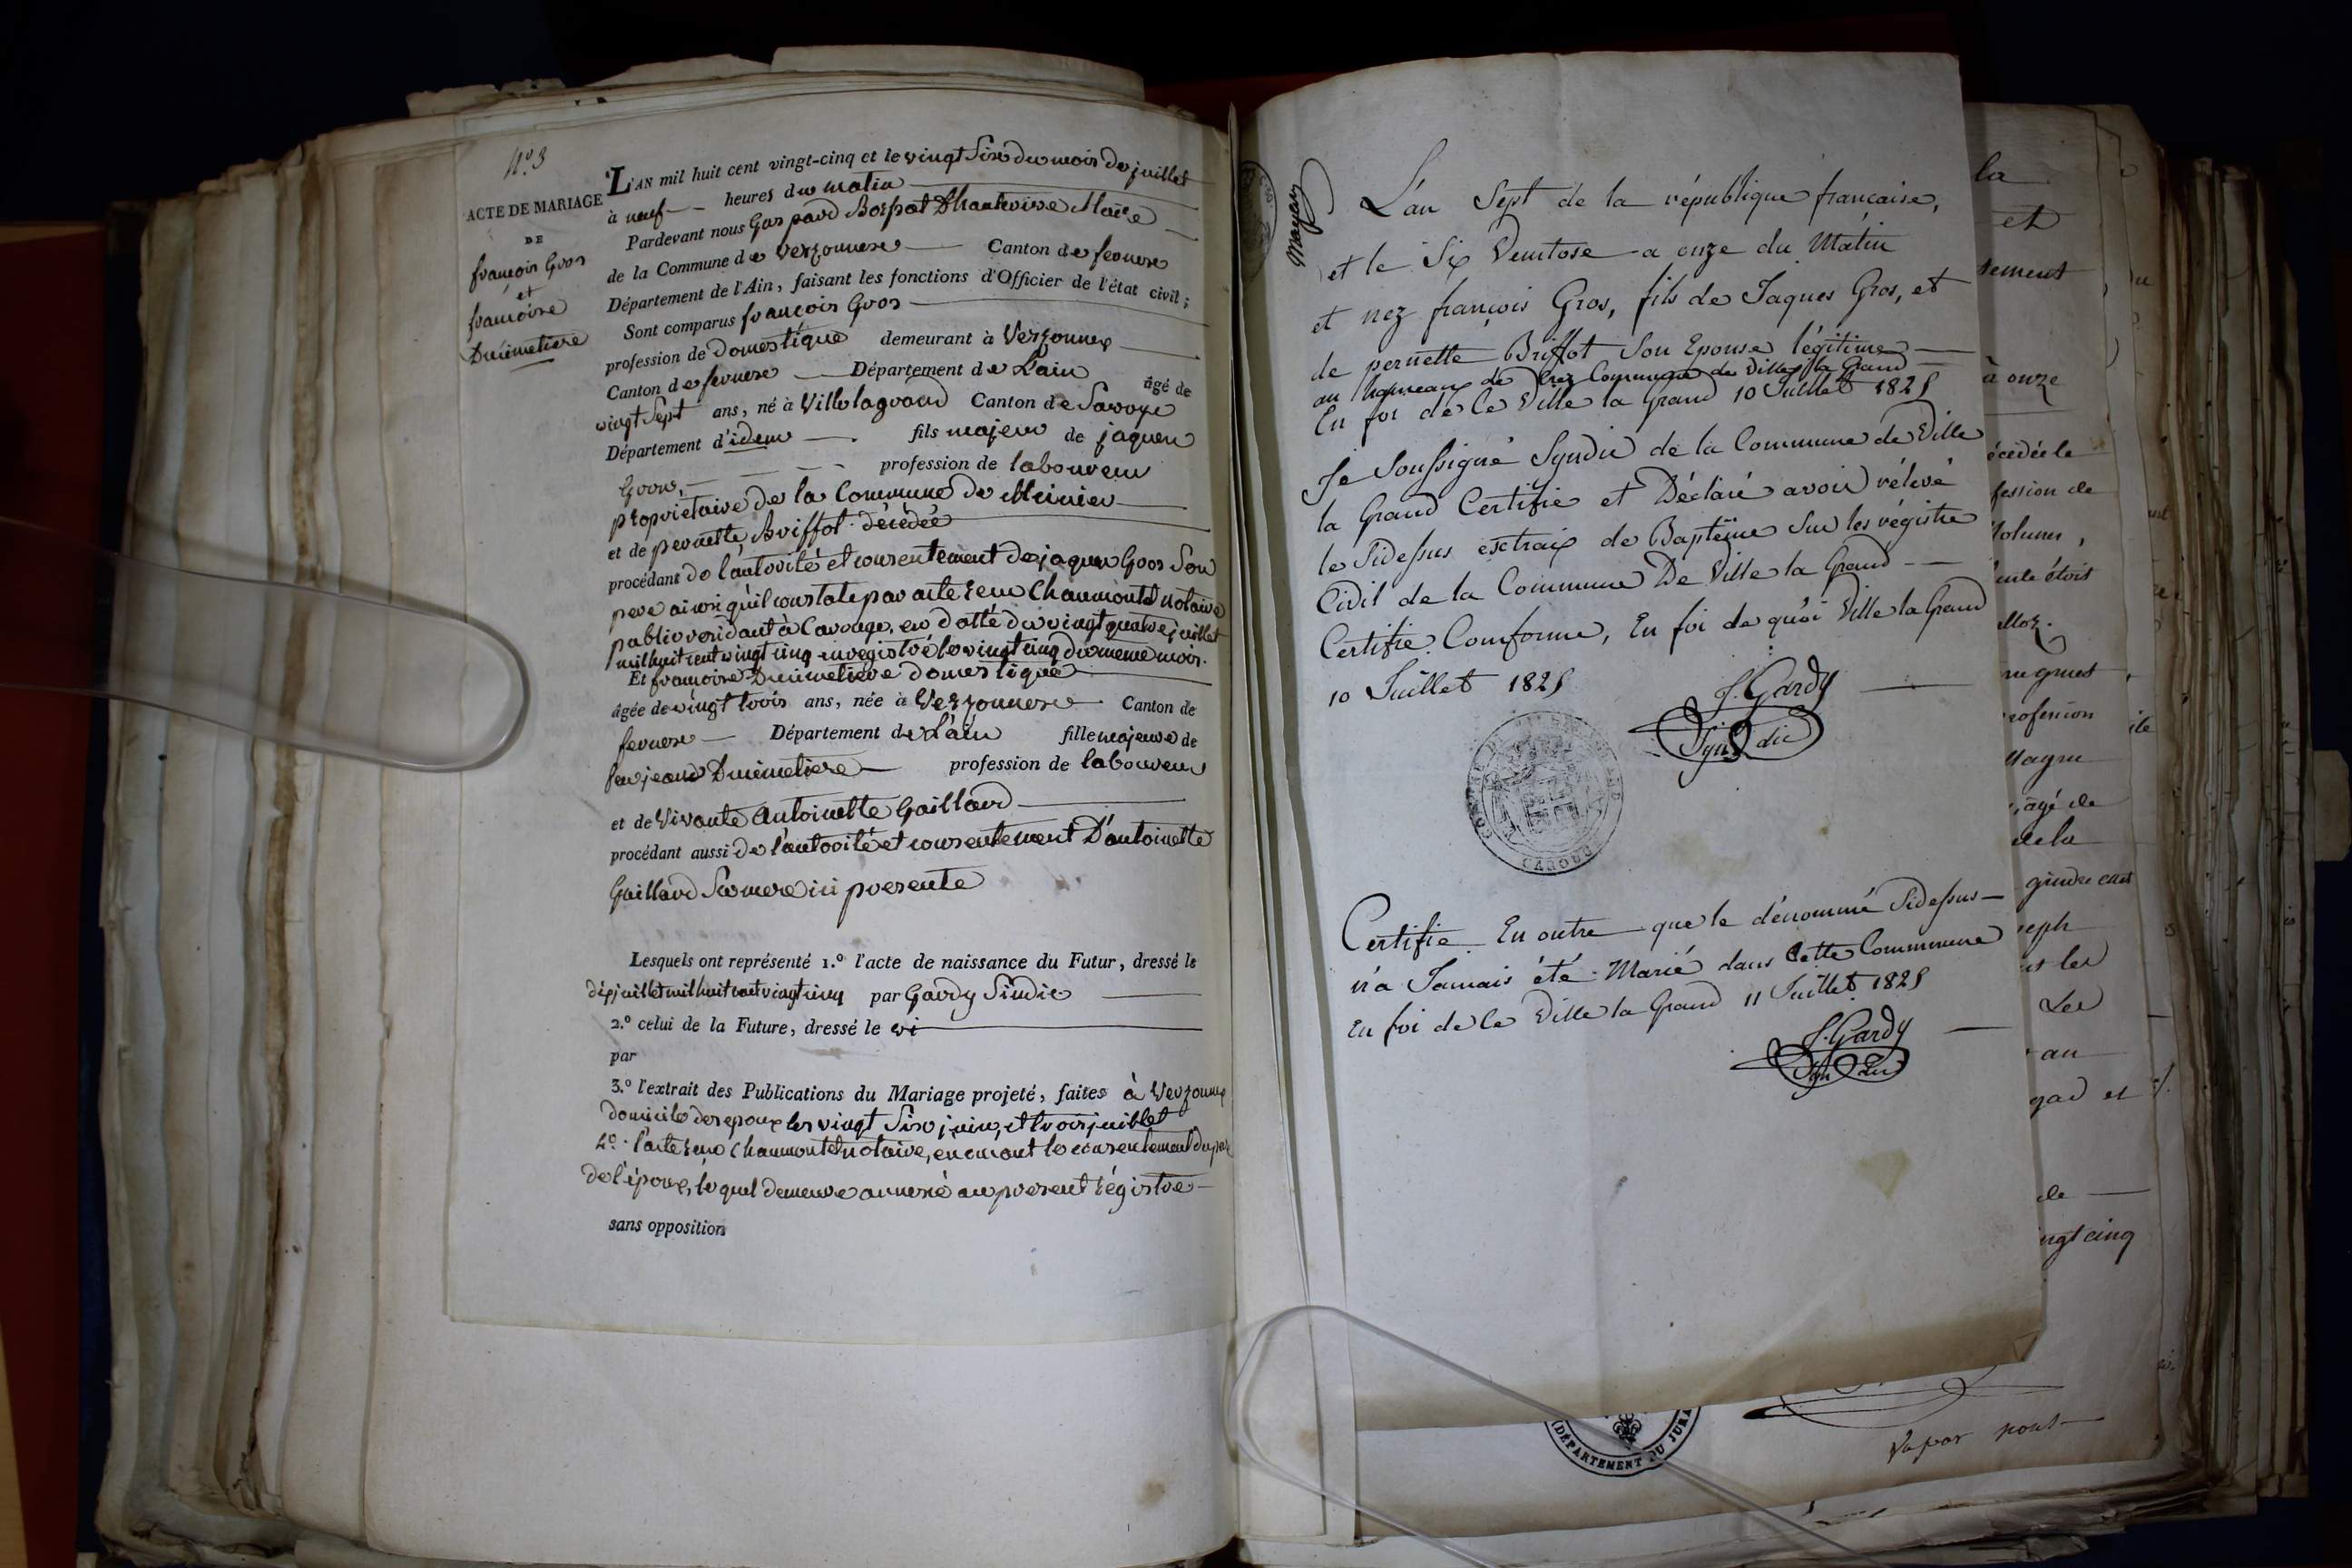 N.º 3
ACTE DE MARIAGE
DE
françois Gros
et
françoise
Ducimetiere
L'AN mil huit cent vingt-cinq et le vingt Six du mois de juillet
à neuf — heures du matin
Pardevant nous Gaspard Bospat Dhauteville Maire
de la Commune de Versonnex Canton de fernex
Département de l'Ain, faisant les fonctions d'Officier de l'état civil ;
Sont comparus françois Gros
profession de Domestique demeurant à Versonnex
Canton de fernex Département de L'ain âgé de
vingt Sept ans, né à Ville la grand Canton de Savoye
Département d'idem fils majeur de jaques
Gros, profession de laboureur
propriétaire de la Commune de Meinier
et de pernette Briffot décédée
procédant de l'autorité et consentement de jaques Gros Son
pere ainsi qu'il constate par acte reçu Chaumontet notaire
public residant à Carouge, en datte du vingt quatre juillet
mil huit cent vingt cinq enregistré le vingt cinq du meme mois.
Et françoise Ducimetiere domestique
âgée de vingt trois ans, née à Versonnex Canton de
fernex Département de L'ain fille majeure de
feu jean Ducimetiere profession de laboureur
et de Vivante Antoinette Gaillard
procédant aussi de l'autorité et consentement D'antoinette
Gaillard Sa mere ici presente
Lesquels ont représenté 1.º l'acte de naissance du Futur, dressé le
dix juillet mil huit cent vingt cinq par Gardy Sindic
2.º celui de la Future, dressé le
par
3.º l'extrait des Publications du Mariage projeté, faites à Versonnex
Domicile des epoux les vingt Six juin, et trois juillet
4.º l'acte reçu Chaumontet notaire, enonçant le consentement du pere
de l'époux, lequel demeure annexé au present régistre
sans opposition
L'an Sept de la république française,
et le Six Ventose a onze du Matin
et nez françois Gros, fils de Jaques Gros, et
de pernette Briffot Son Epouse légitime
au hameau de Crez Commune de Ville la Grand
En foi de Ce Ville la Grand 10 Juillet 1825
Je Soussigné Syndic de la Commune de Ville
la Grand Certifie et Déclaré avoir rélevé
le Sidessus extraix de Baptême Sur les régistre
Civil de la Commune De Ville la Grand
Certifie Conforme, En foi de quoi Ville la Grand
10 Juillet 1825
J. Gardy
Syndic
CAROUGE
Certifie En outre que le dénommé Sidessus
n'a Jamais été Marié dans Cette Commune
En foi de Ce Ville la Grand 11 Juillet 1825
J. Gardy
Syndic
la
et
à onze
fession de
âgé de
de la
les
Les
au
de
ngt cinq
DÉPARTEMENT DU JURA